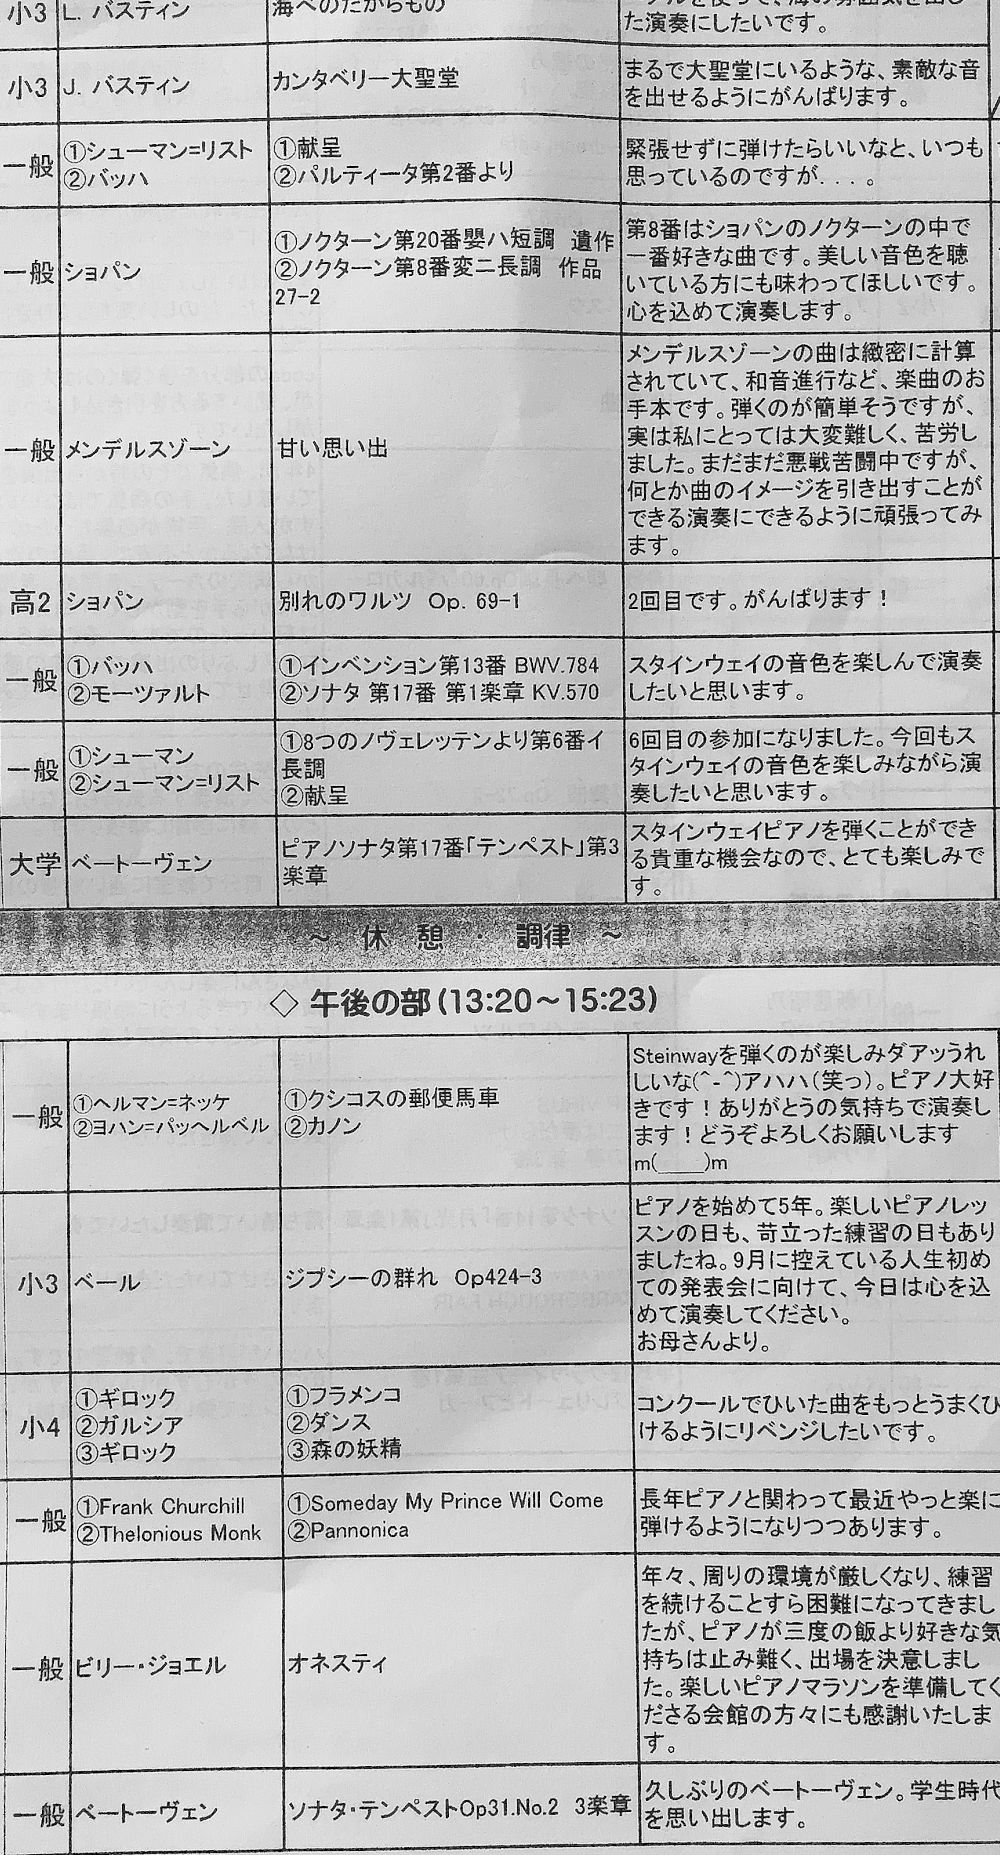 小3 L. バスティン 海べのたからもの
た演奏にしたいです。
小3 J. バスティン カンタベリー大聖堂 まるで大聖堂にいるような、素敵な音
を出せるようにがんばります。
一般 ①シューマン=リスト ①献呈 緊張せずに弾けたらいいなと、いつも
②バッハ ②パルティータ第2番より 思っているのですが．．．．。
一般 ショパン
①ノクターン第20番嬰ハ短調 遺作
②ノクターン第8番変ニ長調 作品
27-2
第8番はショパンのノクターンの中で
一番好きな曲です。美しい音色を聴
いている方にも味わってほしいです。
心を込めて演奏します。
一般 メンデルスゾーン 甘い思い出
メンデルスゾーンの曲は緻密に計算
されていて、和音進行など、楽曲のお
手本です。弾くのが簡単そうですが、
実は私にとっては大変難しく、苦労し
ました。まだまだ悪戦苦闘中ですが、
何とか曲のイメージを引き出すことが
できる演奏にできるように頑張ってみ
ます。
高2 ショパン 別れのワルツ Op. 69-1 2回目です。がんばります！
一般 ①バッハ ①インベンション第13番 BWV.784 スタインウェイの音色を楽しんで演奏
②モーツァルト ②ソナタ 第17番 第1楽章 KV.570 したいと思います。
一般 ①シューマン
②シューマン=リスト
①8つのノヴェレッテンより第6番イ
長調
②献呈
6回目の参加になりました。今回もス
タインウェイの音色を楽しみながら演
奏したいと思います。
大学 ベートーヴェン
ピアノソナタ第17番「テンペスト」第3
楽章
スタインウェイピアノを弾くことができ
る貴重な機会なので、とても楽しみで
す。
～ 休 憩 ・ 調律 ～
◇ 午後の部(13:20～15:23)
一般 ①ヘルマン=ネッケ ①クシコスの郵便馬車
②ヨハン=パッヘルベル ②カノン
Steinwayを弾くのが楽しみダアッうれ
しいな(^-^)アハハ(笑っ)。ピアノ大好
きです！ありがとうの気持ちで演奏し
ます！どうぞよろしくお願いします
m(____)m
小3 ベール ジプシーの群れ Op424-3
ピアノを始めて5年。楽しいピアノレッ
スンの日も、苛立った練習の日もあり
ましたね。9月に控えている人生初め
ての発表会に向けて、今日は心を込
めて演奏してください。
お母さんより。
小4
①ギロック ①フラメンコ
②ガルシア ②ダンス
③ギロック ③森の妖精
コンクールでひいた曲をもっとうまくひ
けるようにリベンジしたいです。
一般 ①Frank Churchill ①Someday My Prince Will Come 長年ピアノと関わって最近やっと楽に
②Thelonious Monk ②Pannonica 弾けるようになりつつあります。
一般 ビリー・ジョエル オネスティ
年々、周りの環境が厳しくなり、練習
を続けることすら困難になってきまし
たが、ピアノが三度の飯より好きな気
持ちは止み難く、出場を決意しまし
た。楽しいピアノマラソンを準備してく
ださる会館の方々にも感謝いたしま
す。
一般 ベートーヴェン ソナタ・テンペストOp31.No.2 3楽章 久しぶりのベートーヴェン。学生時代
を思い出します。